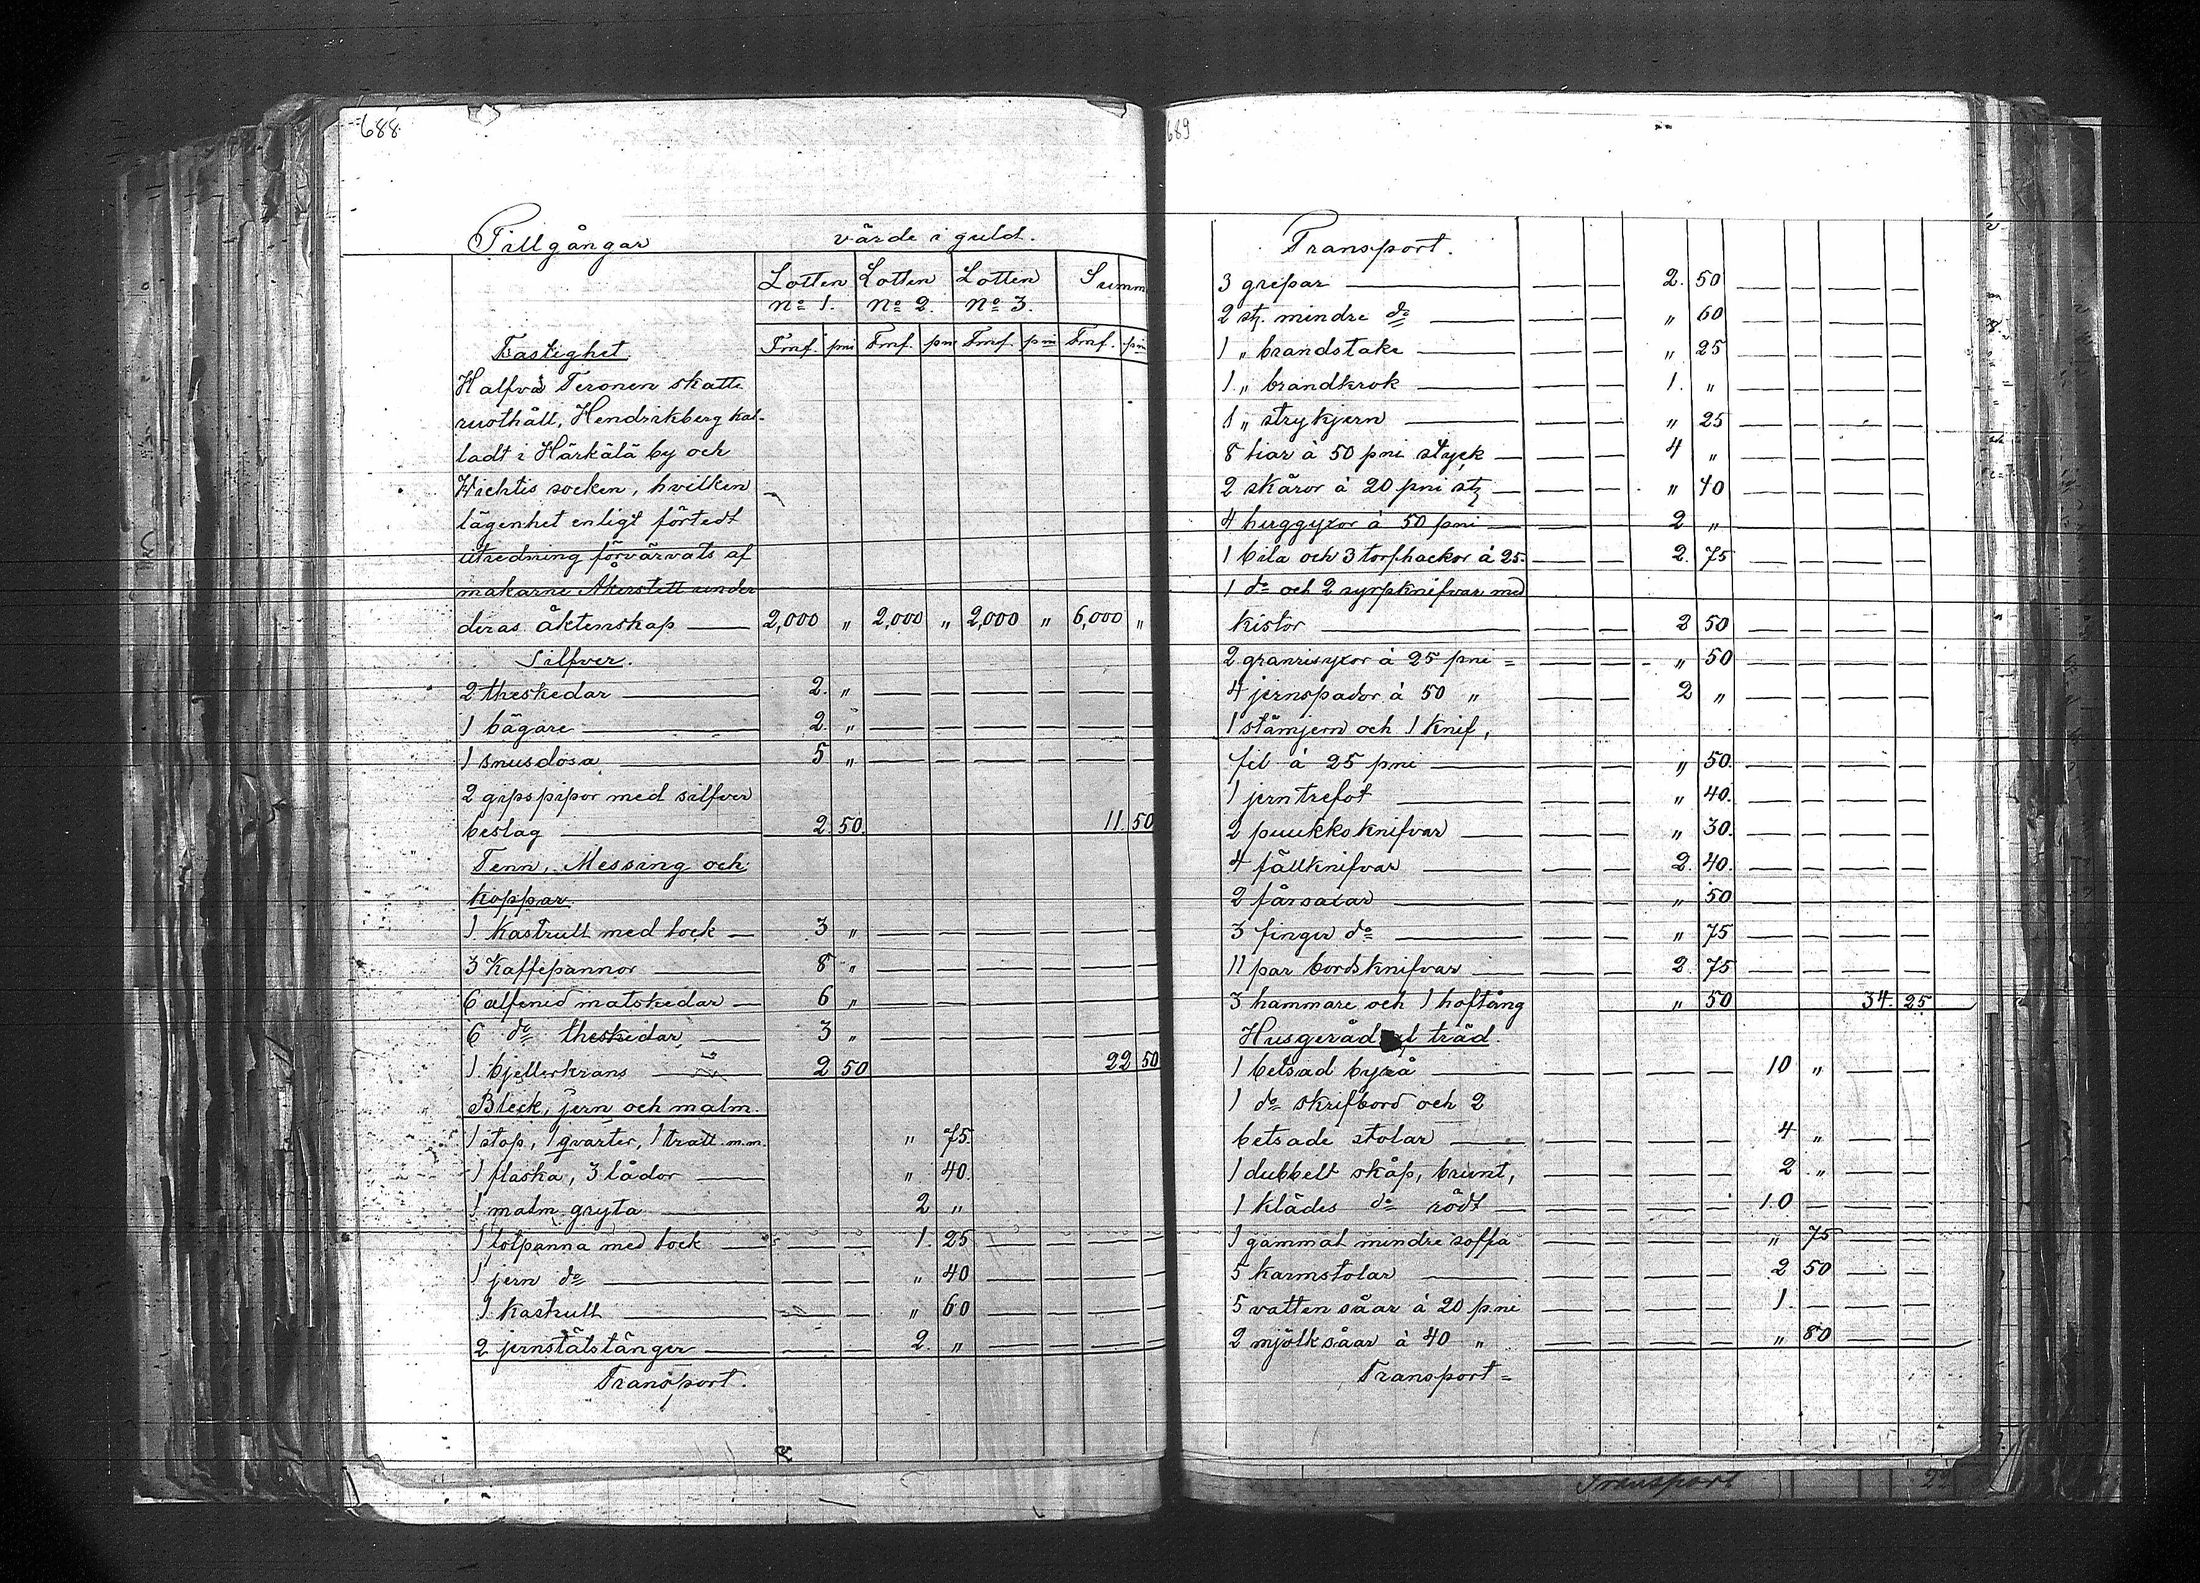 688
Tillgångar värde i guld.
Lotten Lotten Lotten Summ
No 1. No 2. No 3.
Fastighet. Fmf. pni Fmf. pni Fmf. pni Fmf. pni
Halfva Teronen skatte
rusthåll, Hendrikberg kal-
ladt i Härkälä by och
Wichtis socken, hvilken
lägenhet enligt företedt
utredning förvärvats af
makarne Åkerstett under
deras äktenskap — 2,000 " 2,000 " 2,000 " 6,000 "
Silfver.
2 theskedar — 2. " — — — — — —
1 bägare — 2. " — — — — — —
1 snusdosa — 5 " — — — — — —
2 gipspipor med silfver
beslag — 2. 50. 11. 50
Tenn, Messing och
Koppar.
1. Kastrull med lock — 3 " — — — — — —
3 Kaffepannor — 8 " — — — — — —
6 alfenid matskedar — 6 " — — — — — —
6 do theskedar — 3 " — — — — — —
1. bjellerkrans — 2 50 22 50
Bleck, jern och malm.
1 stop, 1 qvarter, 1 tratt m.m. " 75.
1 flaska, 3 lådor — " 40.
1 malm gryta — 2 "
1 lotpanna med lock — — — 1. 25 — — — —
1 jern do — — — " 40 — — — —
1 Kastrull — — — " 60 — — — —
2 jernstålstänger — — — 2. " — — — —
Transport
689
Transport.
3 grepar — — — 2. 50 — — — —
2 st. mindre do — — — " 60 — — — —
1 " brandstake — — — " 25 — — — —
1. " brandkrok — — — 1. " — — — —
1 " strykjern — — — " 25 — — — —
8 liar à 50 pni styck — — — 4 " — — — —
2 skäror à 20 pni st — — — " 40 — — — —
4 huggyxor à 50 pni — — — 2 " — — — —
1 bila och 3 torfhackor à 25. — — 2. 75 — — — —
1 do och 2 syrpknifvar med
kistor — — — 2 50 — — — —
2 granrisyxor à 25 pni = — — " 50 — — — —
4 jernspador à 50 " — — 2 " — — — —
1 stämjern och 1 Knif,
fil à 25 pni — — — " 50. — — — —
1 jern trefot — — — " 40. — — — —
2 puukko knifvar — — — " 30. — — — —
4 fällknifvar — — — 2. 40. — — — —
2 fårsaxar — — — " 50 — — — —
3 finger do — — — " 75 — — — —
11 par bordsknifvar — — — 2. 75 — — — —
3 hammare och 1 hoftång " 50 34. 25
Husgeråd af träd.
1 betsad byrå — — — — — 10 " — —
1 do skrifbord och 2
betsade stolar — — — — — 4 " — —
1 dubbelt skåp, brunt, — — — — 2 " — —
1 klädes do rödt — — — — — 10 — — —
1 gammal mindre soffa — — — — " 75 — —
5 karmstolar — — — — — 2 50 — —
5 vatten såar à 20 pni — — — — 1. — — —
2 mjölk såar à 40 " — — — — " 80 — —
Transport =
Transport